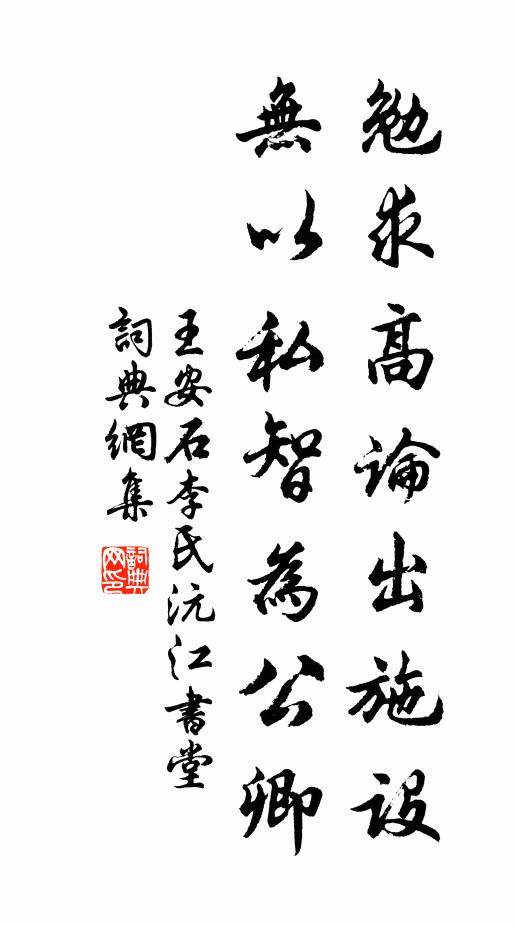 勉求高論出施設
無以私智為公卿
王安石李氏沅江書堂
詞典網集
詞典網印